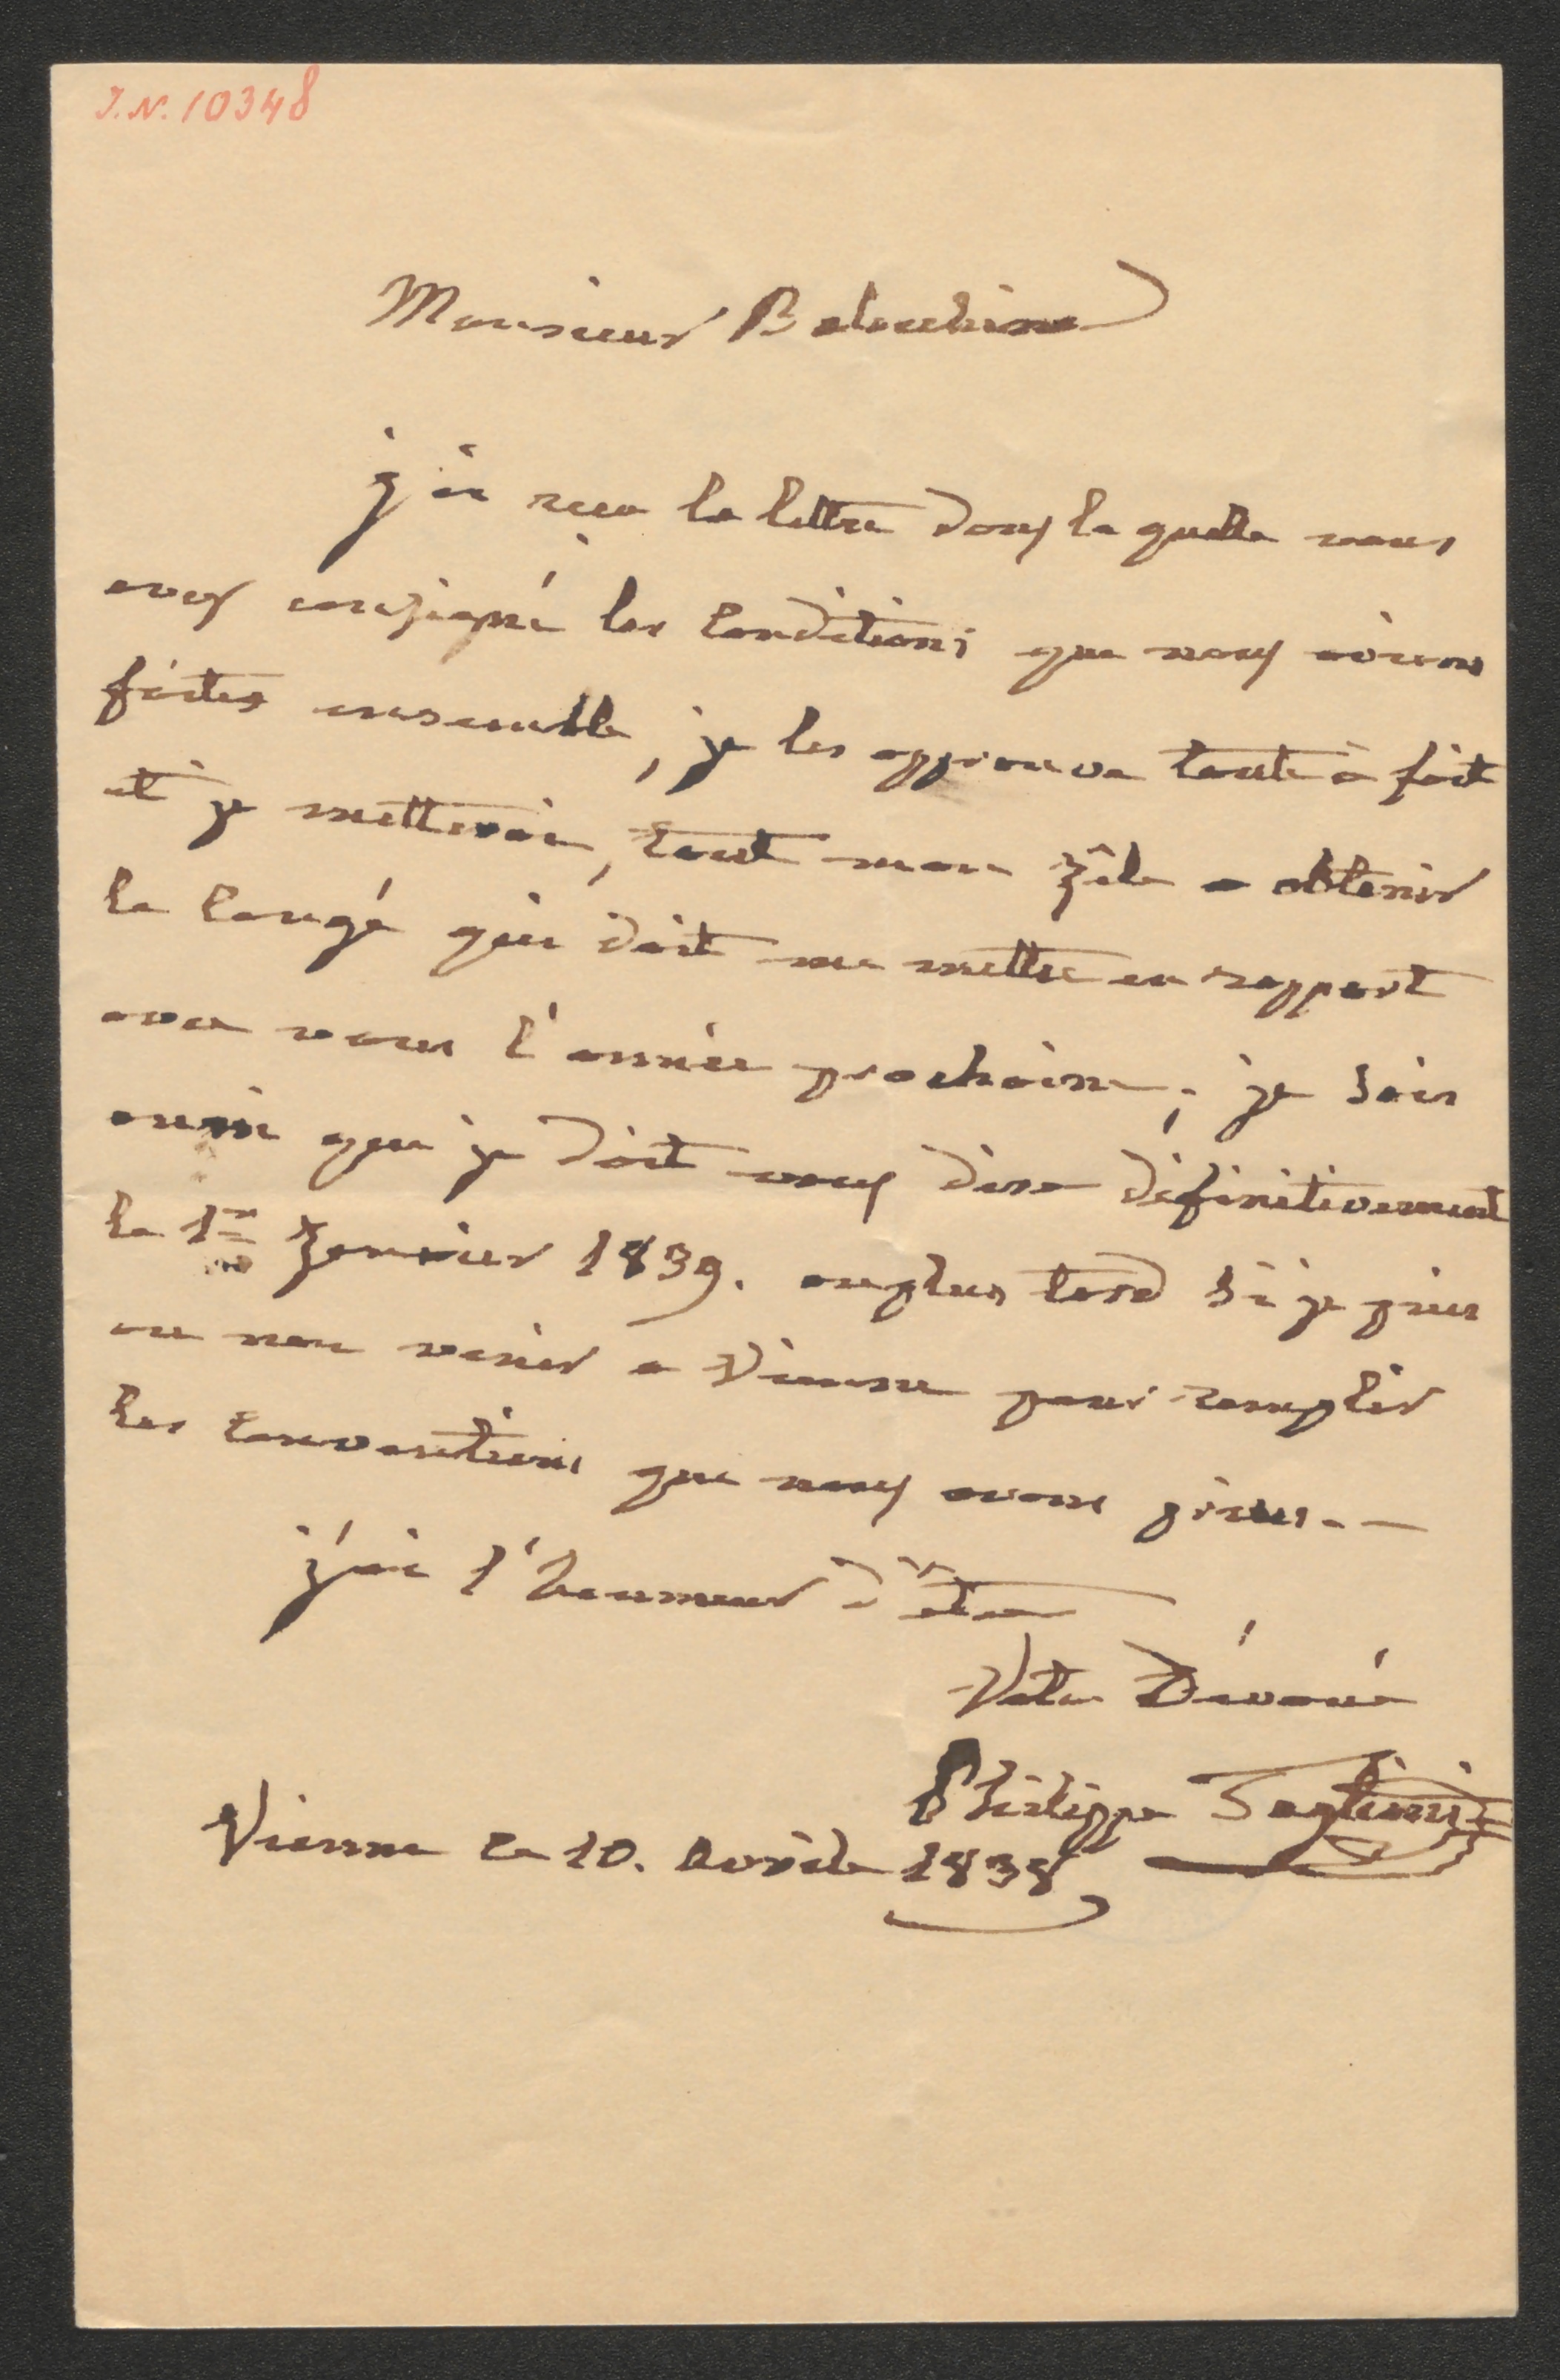 J.N. 10348
Monsieur Balochino
j'ai reçu la lettre dans la quelle vous
avez consigné les Conditions que nous avions
faites ensemble, je les approuve tout à fait
et je metterai, tout mon zèle a obtenir
le Congé qui doit me mettre en rapport
avec vous l'année prochaine; je sais
aussi que je doit vous dire définitivement
le 1er Janvier 1839. au plus tard si je puis
ou non venir a Vienne pour remplir
les Conventions que nous avons prises. —
j'ai l'honneur d'être
Votre Dévoué
Philippe Taglioni
Vienne le 10. Avrile 1838